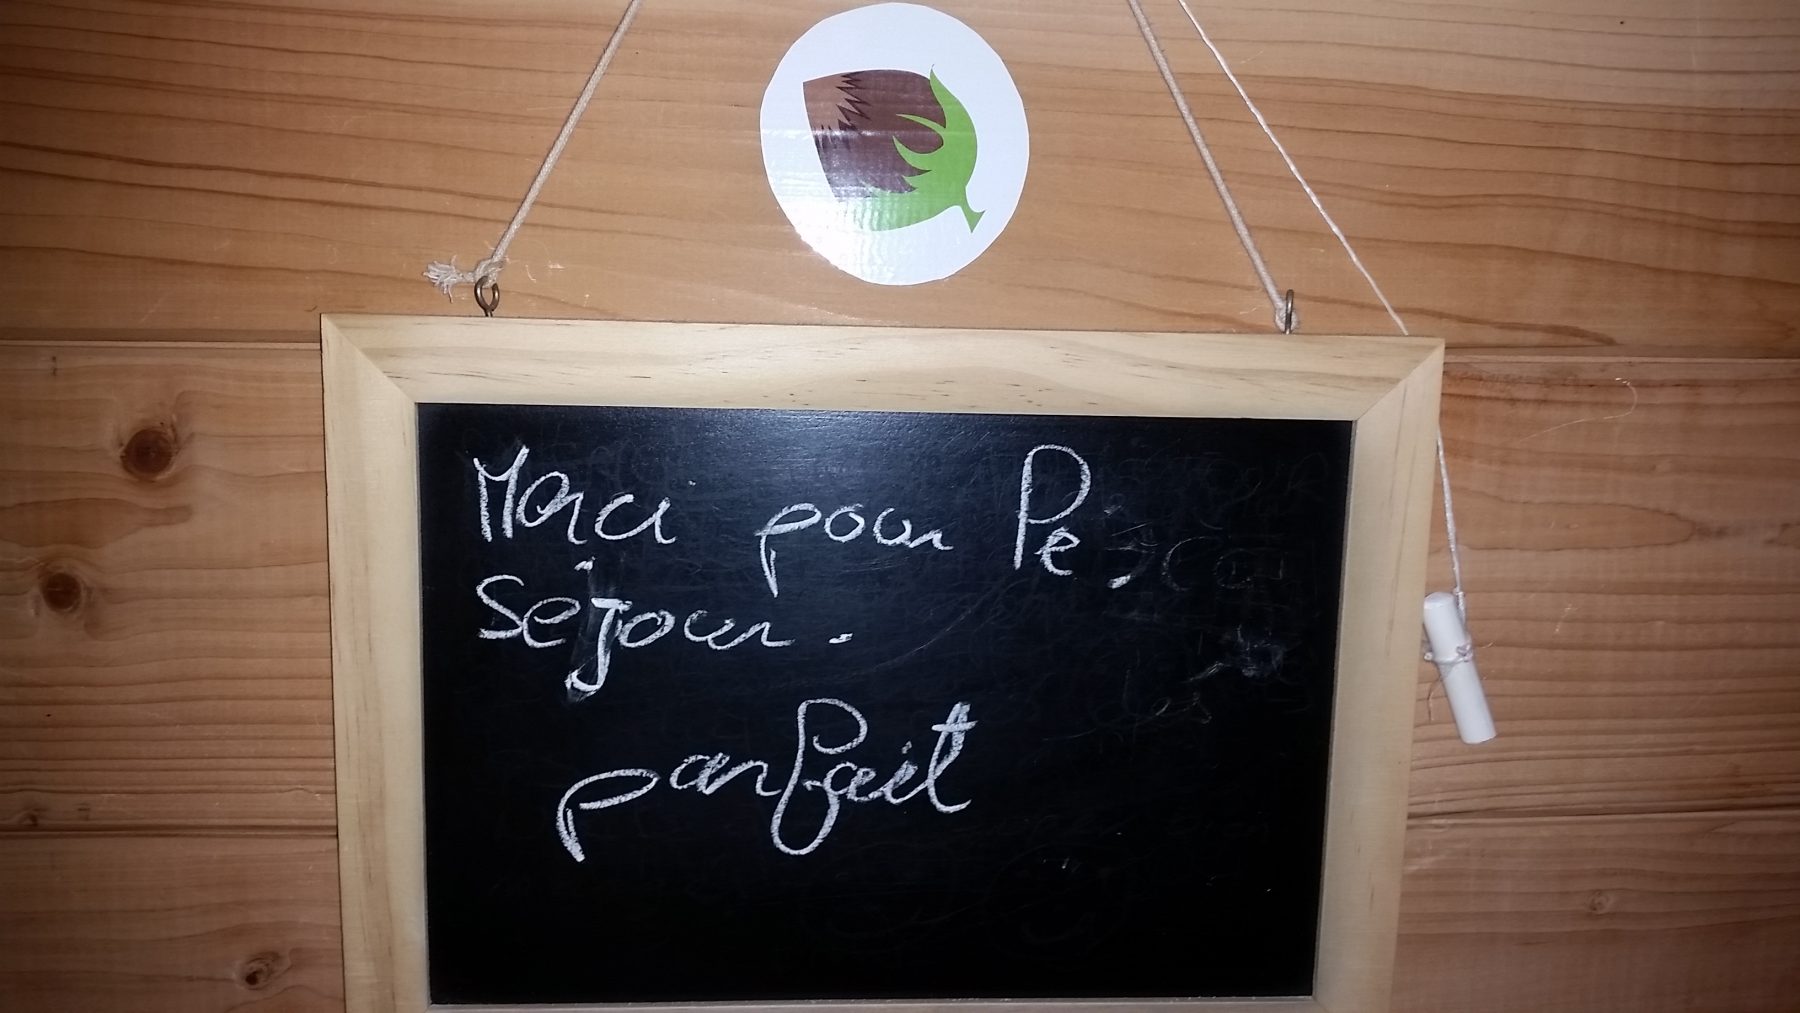 Merci pour Le
Séjour.
parfait